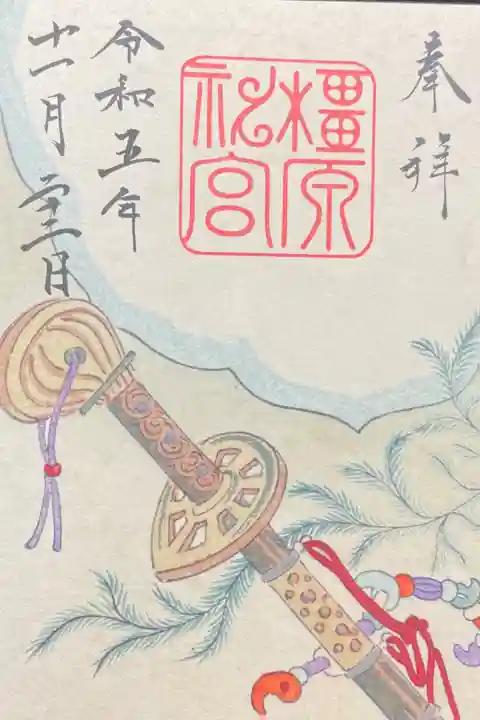 奉拝
橿原
神宮
令和五年
十一月二十二日